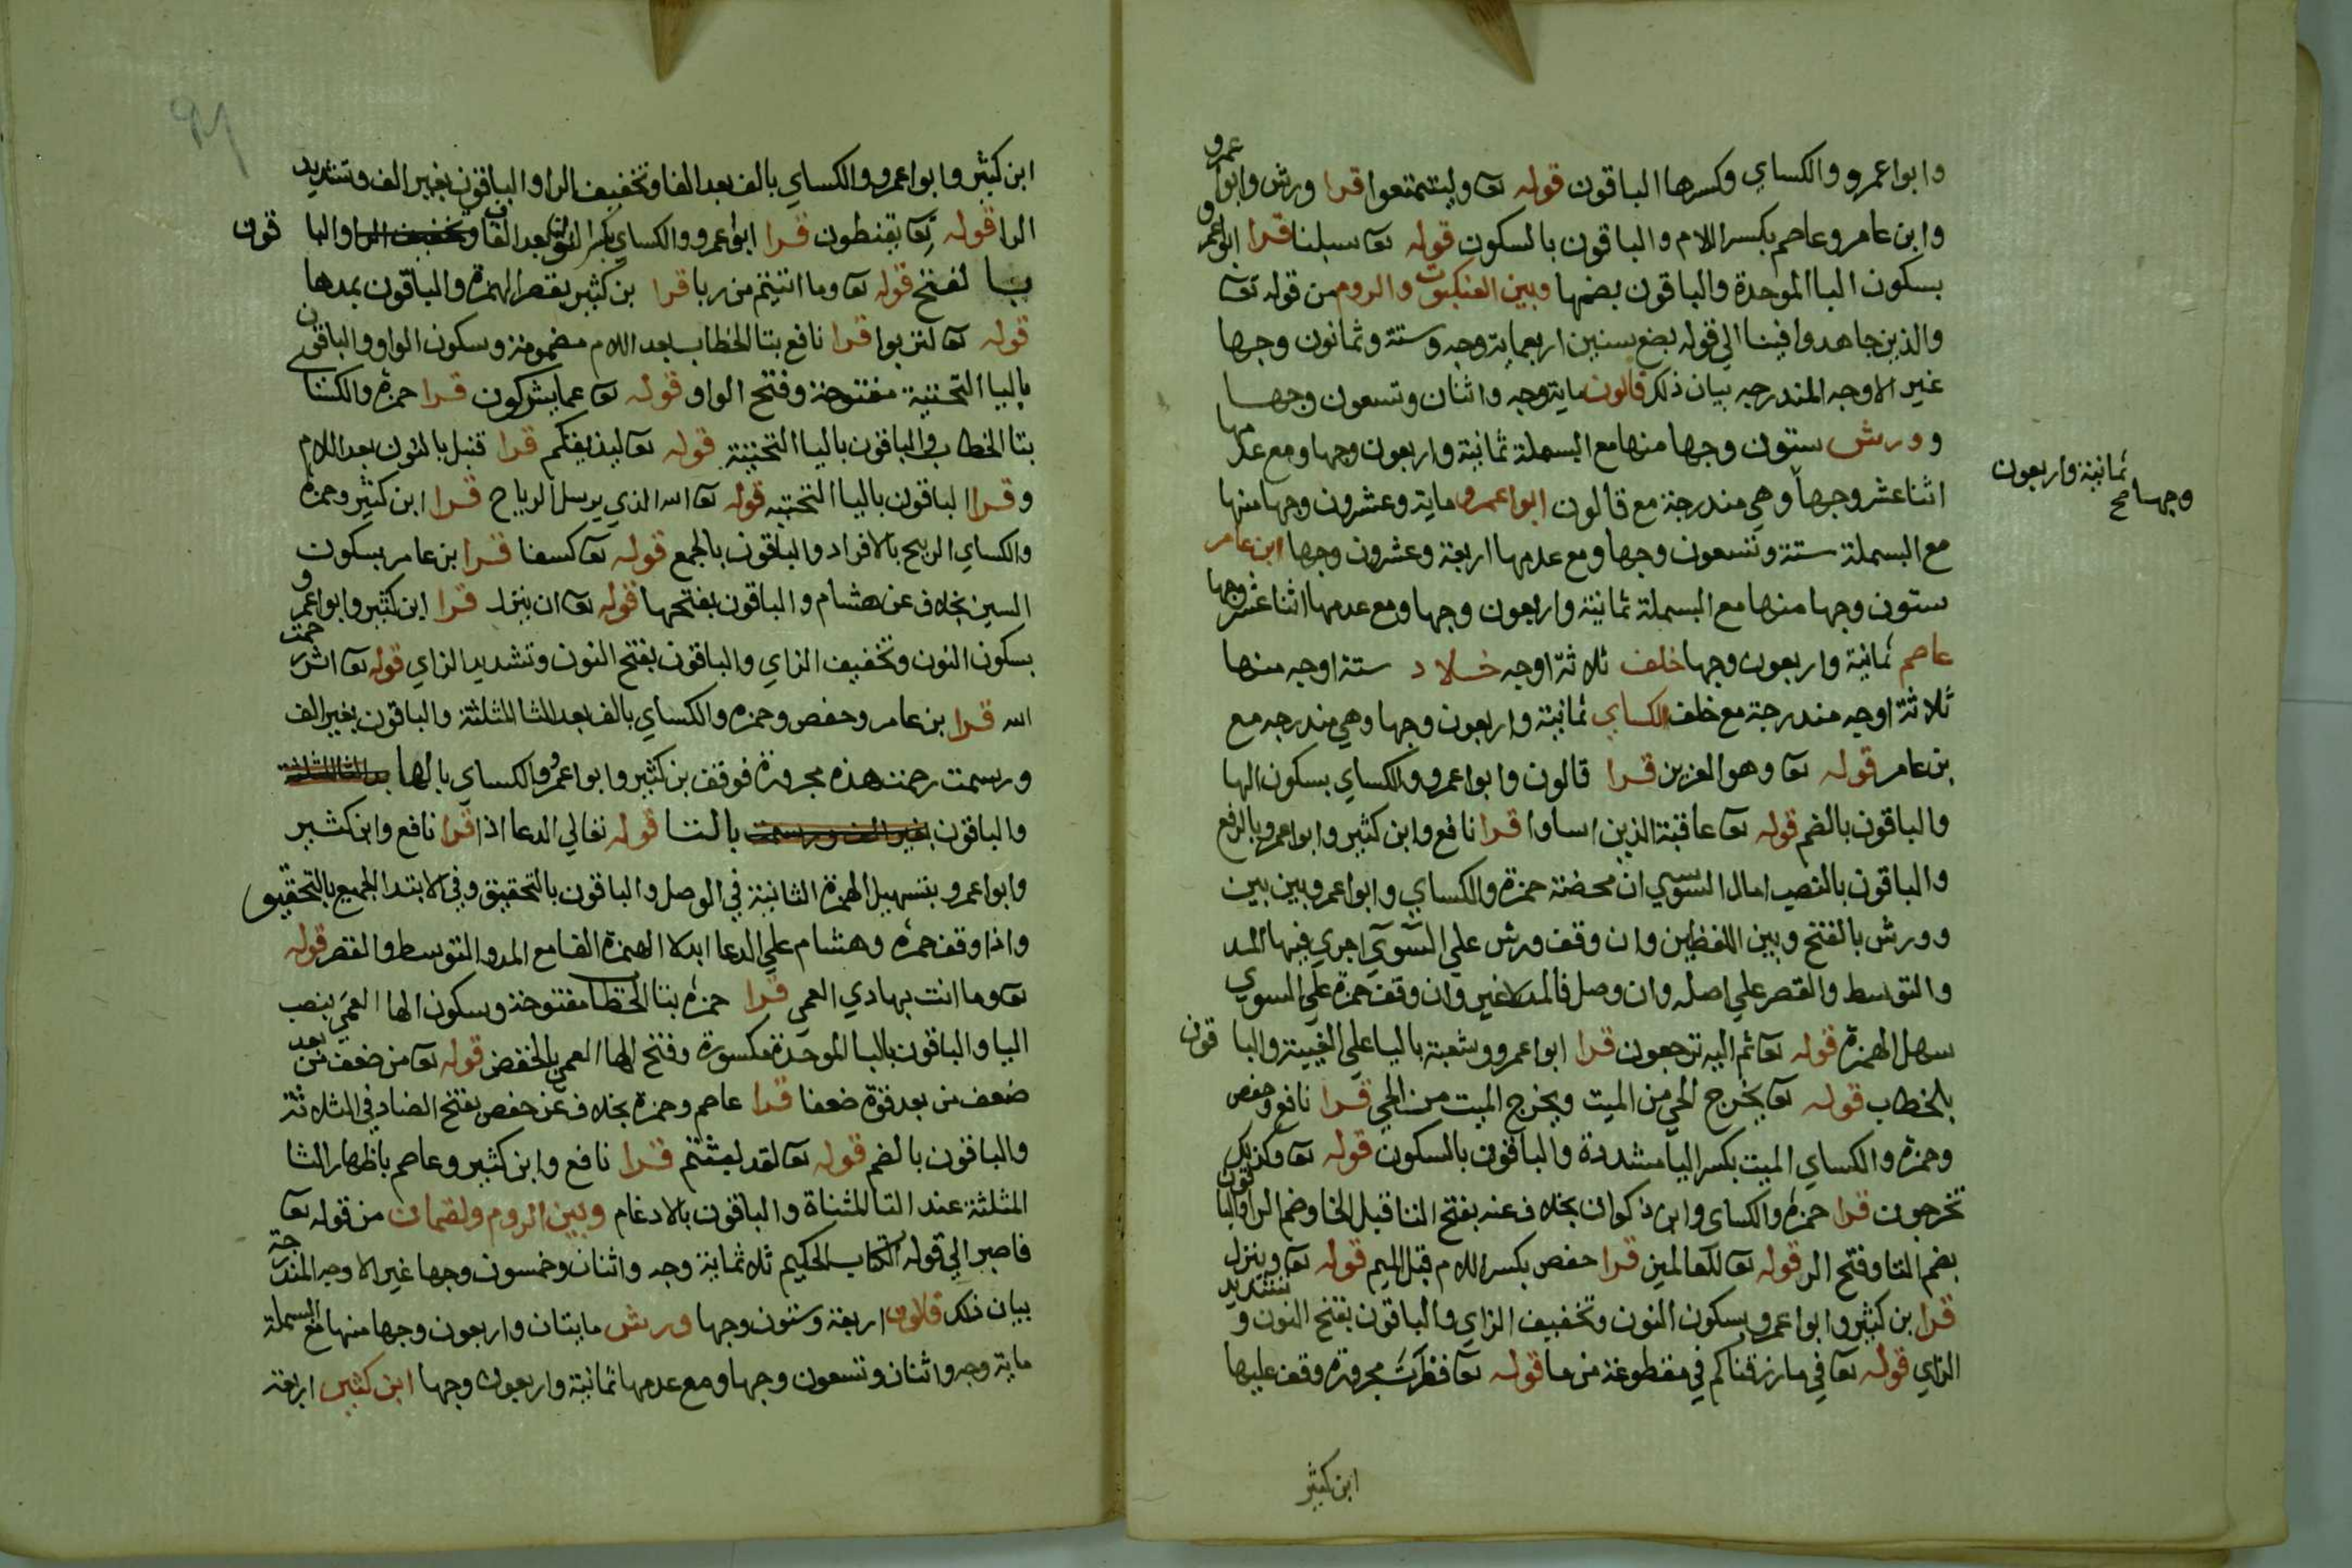 وابوا عمرو والكساي وكسرها الباقون قوله تعا وليتمتعوا قرا ورش وابوا عمرو
وابن عامر وعاصم بكسر اللام والباقون بالسكون قوله تعا سبلنا قرا ابوا عمرو
بسكون البا الموحدة والباقون بضمها وبين العنكبوت والروم من قوله تعا
والذين جاهدوا فينا الي قوله بضع سنين اربعماية وجه وستة وثمانون وجها
غير الاوجه المندرجه بيان ذلك قالون ماية وجه واثنان وتسعون وجها
وورش ستون وجها منها مع البسملة ثمانية واربعون وجها ومع عدمها
اثنا عشر وجهاً وهي مندرجة مع قالون ابوا عمرو ماية وعشرون وجها منها
ثمانية واربعون
وجها صح
مع البسملة ستة وتسعون وجها ومع عدمها اربعة وعشرون وجها ابن عامر
ستون وجها منها مع البسملة ثمانية واربعون وجها ومع عدمها اثنا عشر وجها
عاصم ثمانية واربعون وجها خلف ثلاثة اوجه خلاد ستة اوجه منها
ثلاثة اوجه مندرجة مع خلف الكساي ثمانية واربعون وجها وهي مندرجه مع
بن عامر قوله تعا وهو العزيز قرا قالون وابوا عمرو والكساي بسكون الها
والباقون بالضم قوله تعا عاقبة الذين اساوا قرا نافع وابن كثير وابوا عمرو بالرفع
والباقون بالنصب امال السوي ان محضة حمزة والكساي وابوا عمرو بين بين
وورش بالفتح وبين اللفظين وان وقف ورش علي السوآي اجري فيها المد
والتوسط والقصر علي اصله وان وصل فالمد لا غير وان وقف حمزة علي السوي
سهل الهمزة قوله تعا ثم اليه ترجعون قرا ابوا عمرو وشعبة باليا علي الغيبة والباقون
بالخطاب قوله تعا يخرج الحي من الميت ويخرج الميت من الحي قرا نافع وحفص
وحمزة والكساي الميت بكسر اليا مشددة والباقون بالسكون قوله تعا وكذلك
تخرجون قرا حمزة والكساي وابن ذكوان بخلاف عنه بفتح التا قبل الخا وضم الرا والباقون
بضم التا وفتح الر قوله تعا للعالمين قرا حفص بكسر اللام قبل الميم قوله تعا وينزل
قرا بن كثير وابوا عمرو بسكون النون وتخفيف الزاي والباقون بفتح النون وتشديد
الزاي قوله تعا في ما رزقناكم في مقطوعة من ما قوله تعا فطرت مجرورة وقف عليها
ابن كثير
ابن كثير وابوا عمرو والكساي بالف بعد الفا وتخفيف الرا والباقون بغير الف وتشديد
الرا قوله تعا يقنطون قرا ابوا عمرو والكساي بكسر النون بعد القاف وتخفيف الرا والباقون
با لفتح قوله تعا وما اتيتم من ربا قرا بن كثير بقصر الهمزة والباقون بمدها
قوله تعا لتربوا قرا نافع بتا الخطاب بعد اللام مضمومة وسكون الواو والباقون
باليا التحتية مفتوحة وفتح الواو قوله تعا عما يشركون قرا حمزة والكساي
بتا الخطاب والباقون باليا التحتية قوله تعا ليذيقكم قرا قنبل بالنون بعد اللام
وقرا الباقون باليا التحتيه قوله تعا الله الذي يرسل الرياح قرا ابن كثير وحمزة
والكساي الريح بالافراد والباقون بالجمع قوله تعا كسفا قرا بن عامر بسكون
السين بخلاف عن هشام والباقون بفتحها قوله تعا ان ينزل قرا ابن كثير وابوا عمرو
بسكون النون وتخفيف الزاي والباقون بفتح النون وتشديد الزاي قوله تعا اثر رحمت
الله قرا بن عامر وحفص وحمزه والكساي بالف بعد الثا المثلثة والباقون بغير الف
ورسمت رحمت هذه مجرورة فوقف بن كثير وابوا عمرو والكساي بالها بعد الثا المثلثة
والباقون بغير الف ورسمت بالتا قوله تعالي الدعا اذا قرا نافع وابن كثير
وابوا عمرو بتسهيل الهمزة الثانية في الوصل والباقون بالتحقيق وفي الابتدا الجميع بالتحقيق
واذا وقف حمزه وهشام علي الدعا ابدلا الهمزة الفا مع المد والتوسط والقصر قوله
تعا وما انت بهادي العمي قرا حمزه بتا الخطاب مفتوحة وسكون الها العمي بنصب
اليا والباقون بالبا الموحدة مكسورة وفتح الها العمي بالخفض قوله تعا من ضعف من بعد
ضعف من بعد قوة ضعفا قرا عاصم وحمزة بخلاف عن حفص بفتح الضاد في الثلاثة
والباقون بالضم قوله تعا لقد لبثتم قرا نافع وابن كثير وعاصم باظهار الثا
المثلثة عند التا المثناة والباقون بالادغام وبين الروم ولقمان من قوله تعا
فاصبر الي قوله الكتاب الحكيم ثلاثماية وجه واثنان وخمسون وجها غير الاوجه المندرجة
بيان ذلك قالون اربعة وستون وجها ورش مايتان واربعون وجها منها مع البسملة
ماية وجه واثنان وتسعون وجها ومع عدمها ثمانية واربعون وجها ابن كثير اربعة